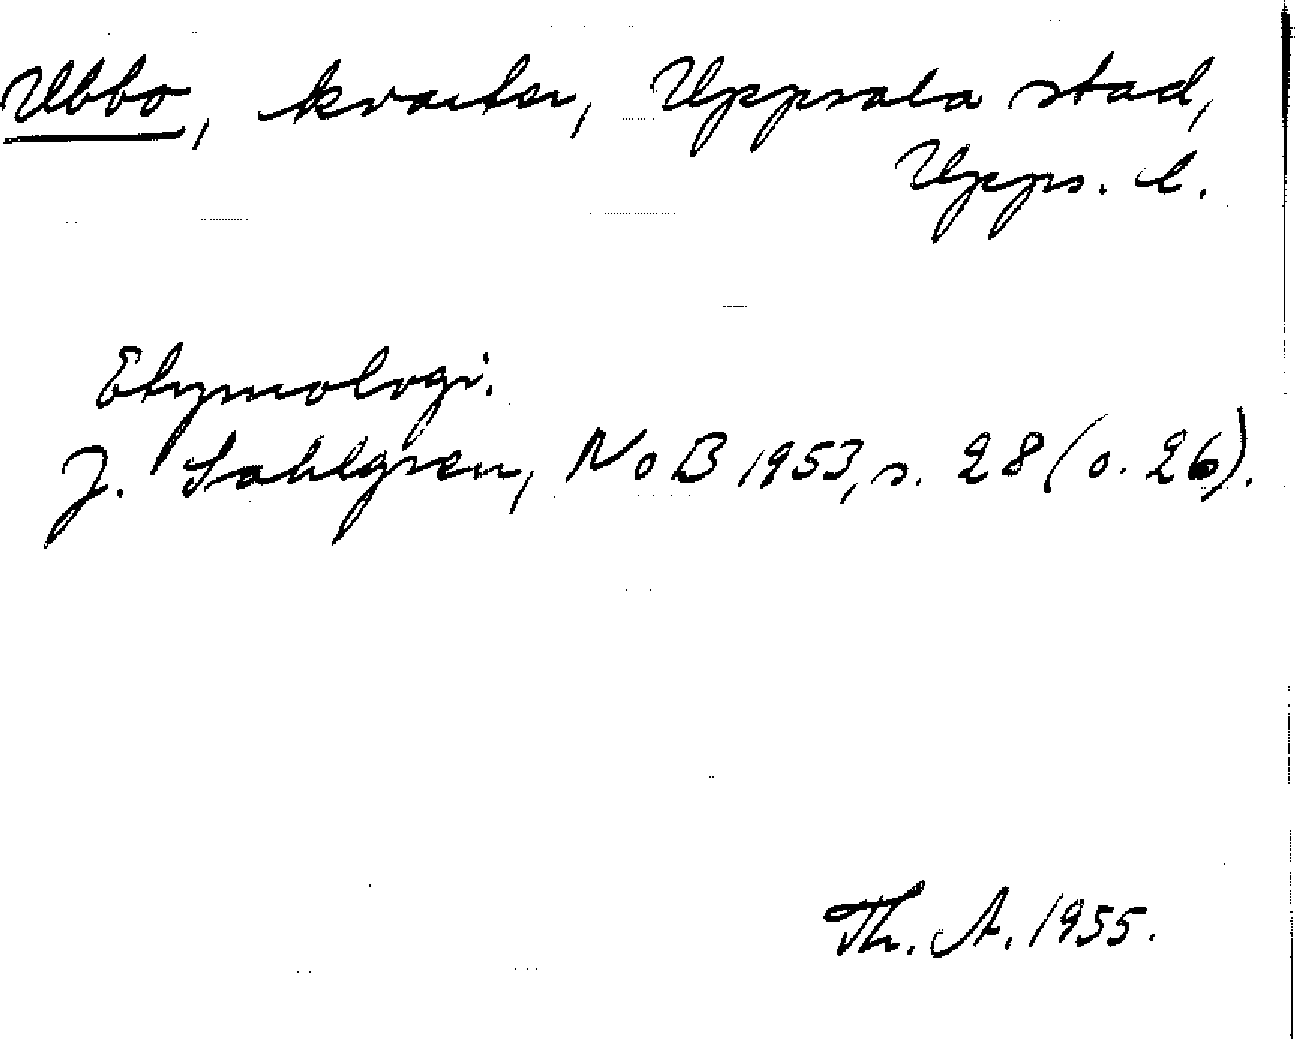 Ubbo, kvarter, Uppsala stad,
Upps. l.
Etymologi.
J. Sahlgren, NoB 1953, s. 28 (o. 26).
Th. A. 1955.